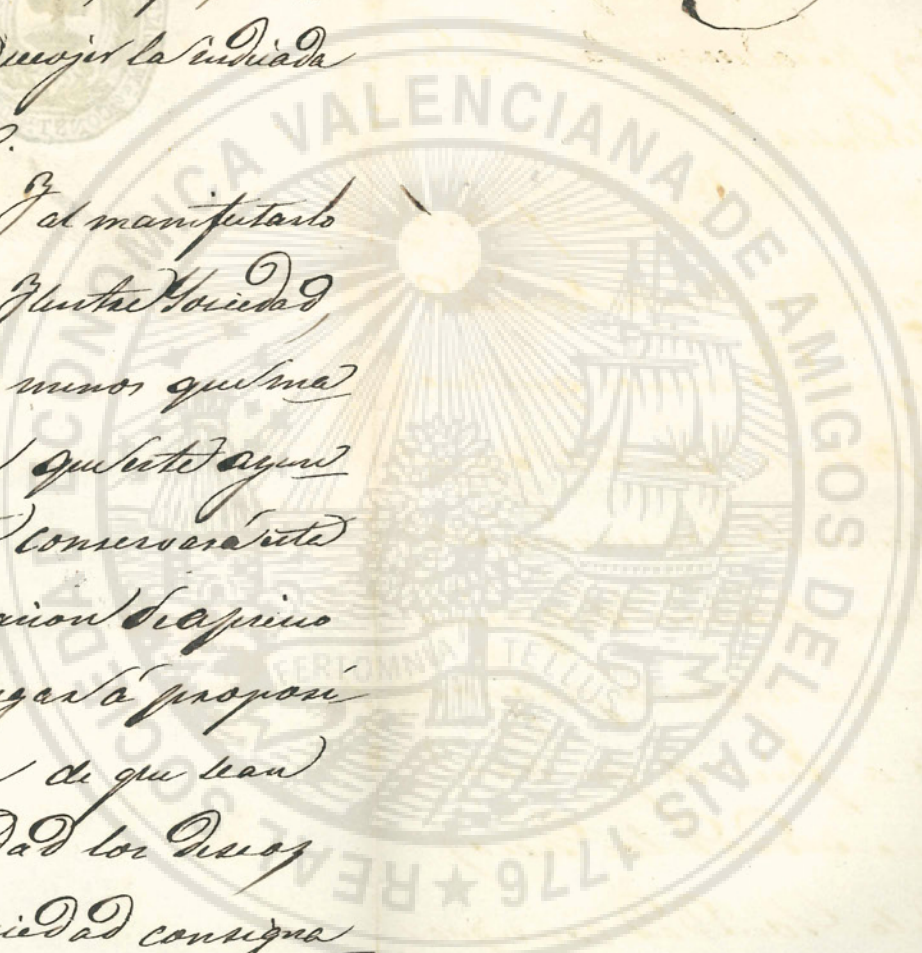 recojer la indicada
Y al manifestarlo
Ilustre Sociedad,
menos que ma
que este ayun
conservará esta
de aprecio
á proposi
de que sean
dad los deseos
iedad consigna
REAL SOCIEDAD ECONOMICA VALENCIANA DE AMIGOS DEL PAIS 1776 ★
FERT OMNIA TELLUS